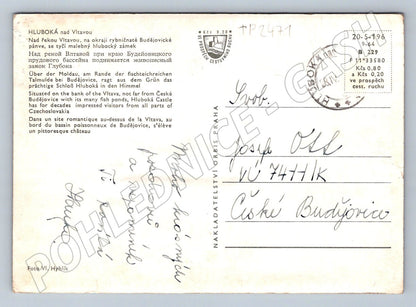 HLUBOKÁ nad Vltavou
Nad řekou Vltavou, na okraji rybničnaté Budějovické
pánve, se tyčí malebný hlubocký zámek
Над рекой Влтавой при краю Будейовицкого
прудового бассейна поднимается живописный
замок Глубока
Über der Moldau, am Rande der fischteichreichen
Talmulde bei Budějovice, ragt aus dem Grün das
prächtige Schloß Hluboká in den Himmel
Situated on the bank of the Vltava, not far from České
Budějovice with its many fish ponds, Hluboká Castle
has for decades impressed visitors from all parts of
Czechoslovakia
Dans un site romantique au-dessus de la Vltava, au
bord du bassin poissonneux de Budějovice, s'élève
un pittoresque château
Mnoho krásných
pozdravů
a vzpomínek
Foto Vl. Hyhlík
NAKLADATELSTVÍ ORBIS PRAHA
TP2471
HLUBOKÁ
20-5-196
F 11*33580
Kčs 0,80
a Kčs 0,20
ve prospěch
čest. ruchu
Svob.
Josef Ott
VÚ 7411/K
České Budějovice
POHLEDNICE - GASH